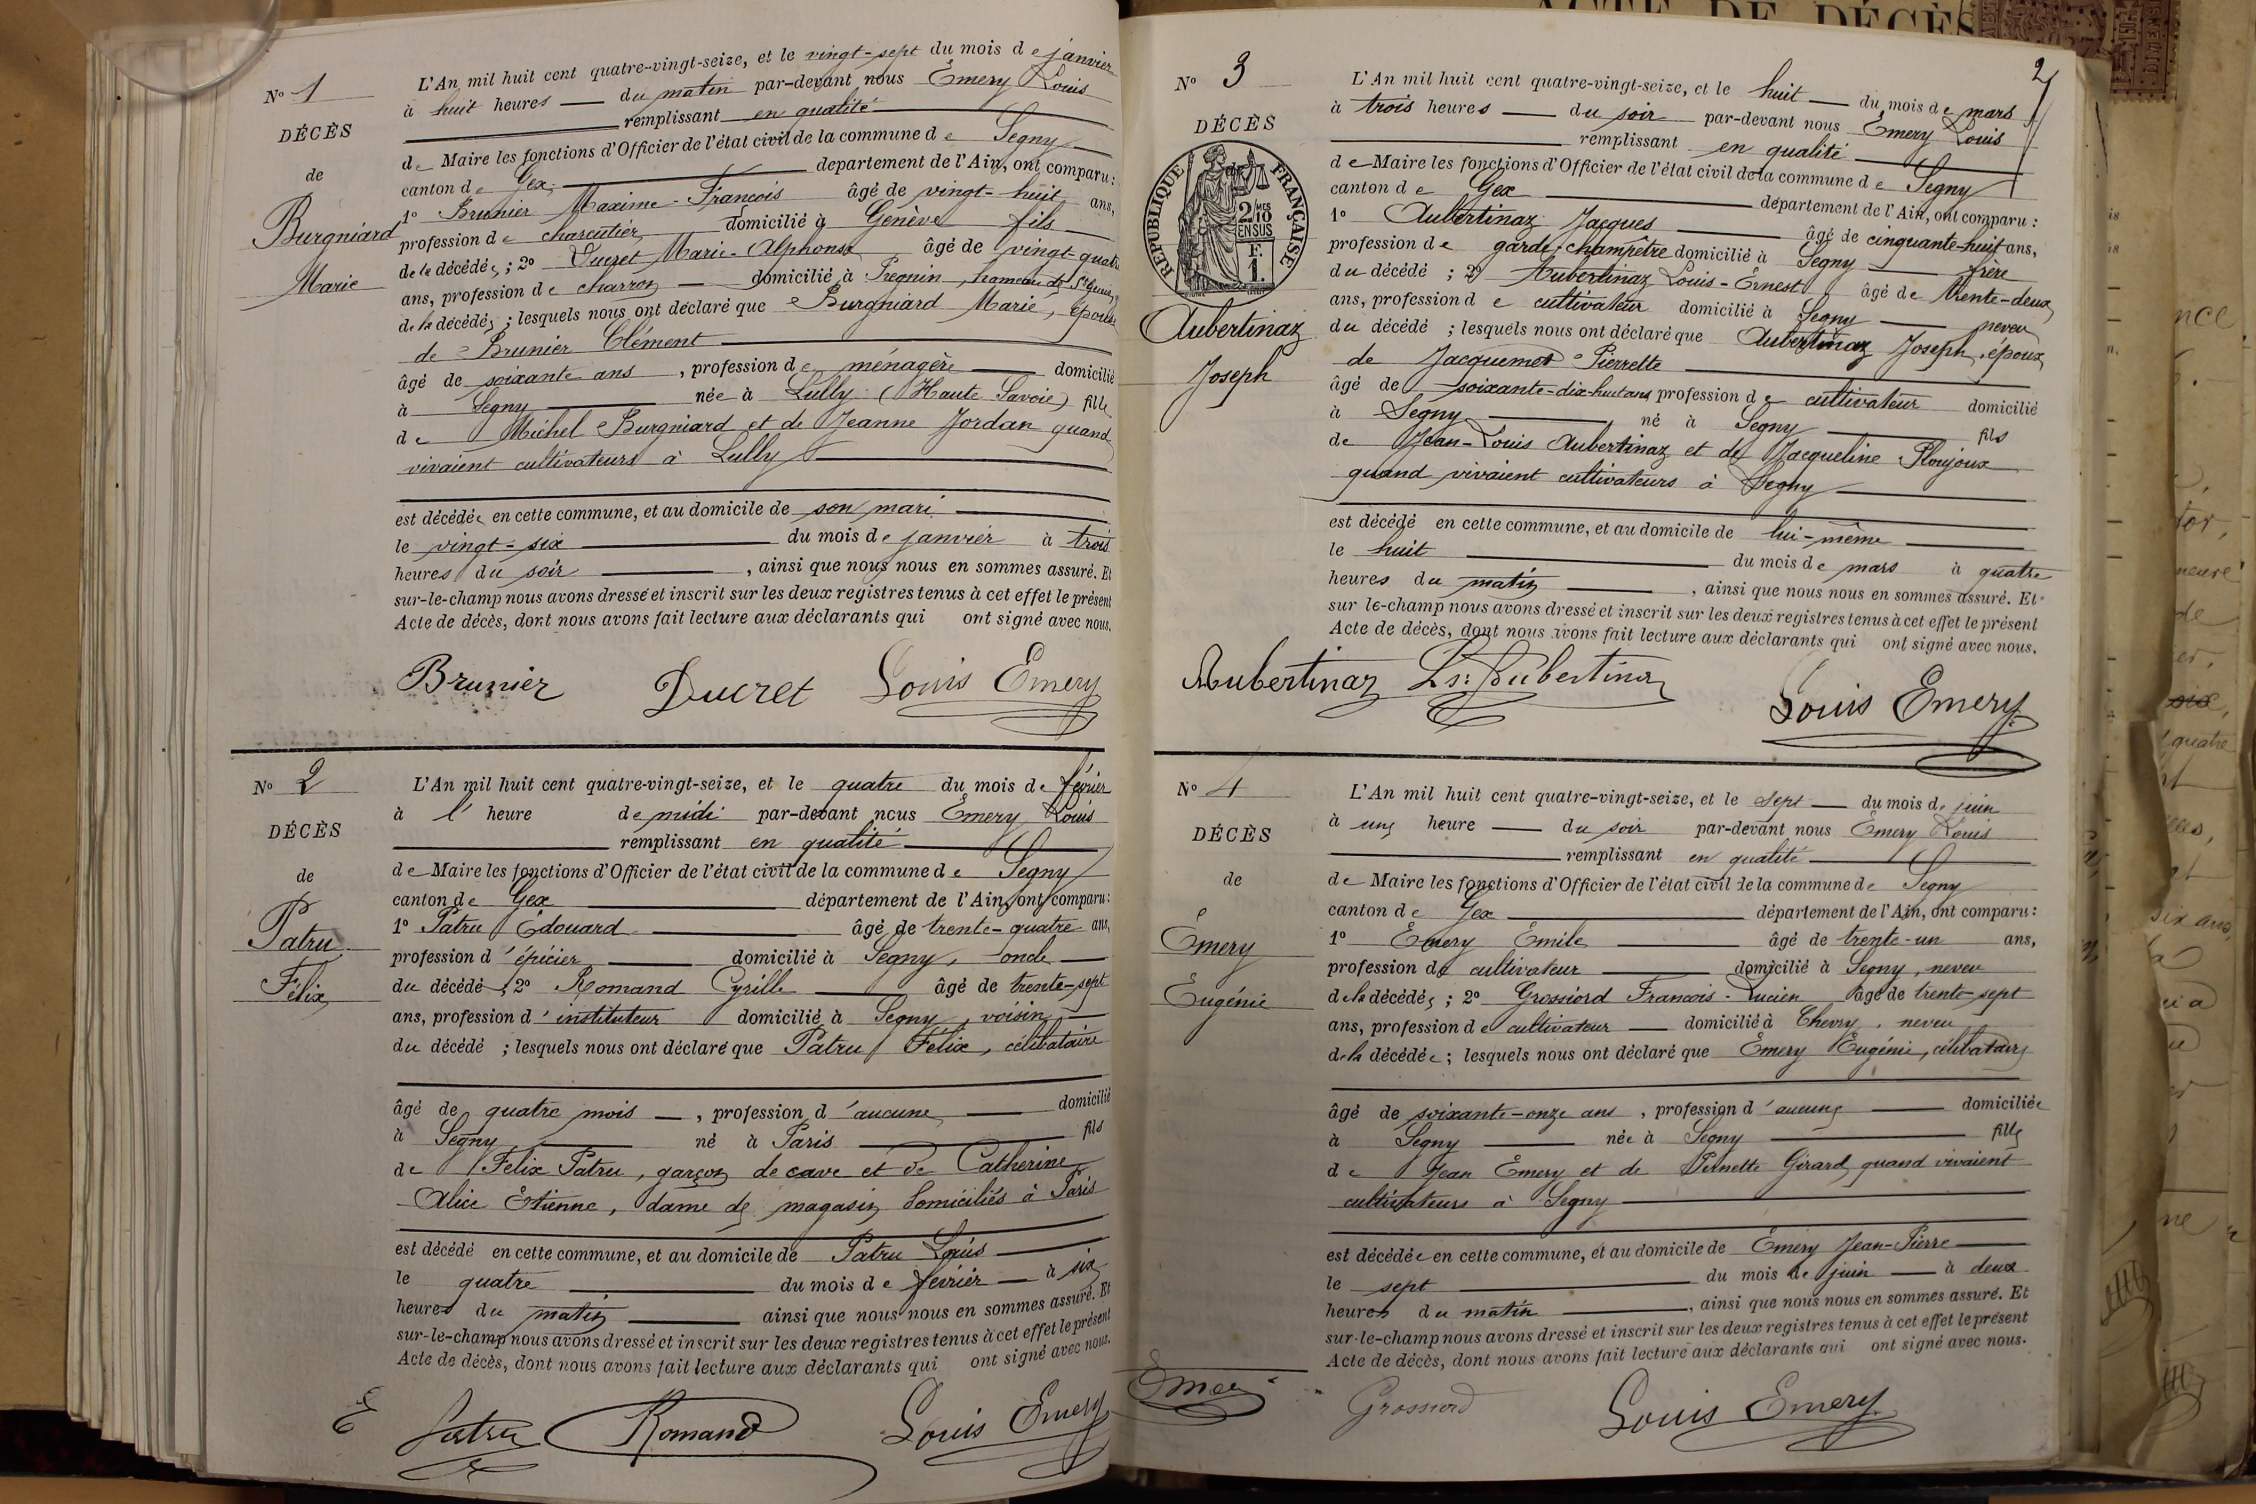 ACTE DE DÉCÈS
N° 1
DÉCÈS
de
Burgniard
Marie
L'An mil huit cent quatre-vingt-seize, et le vingt-sept du mois de janvier
à huit heures du matin par-devant nous Émery Louis
remplissant en qualité
de Maire les fonctions d'Officier de l'état civil de la commune de Segny
canton de Gex département de l'Ain, ont comparu :
1° Brunier Maxime-François âgé de vingt-huit ans,
profession de charcutier domicilié à Genève fils
de la décédée ; 2° Ducret Marie-Alphonse âgé de vingt-quatre
ans, profession de charron domicilié à Pregnin, hameau de St Genis,
de la décédée ; lesquels nous ont déclaré que Burgniard Marie, épouse
de Brunier Clément
âgé de soixante ans, profession de ménagère domicilié
à Segny née à Lully (Haute Savoie) fille
de Michel Burgniard et de Jeanne Jordan quand
vivaient cultivateurs à Lully
est décédée en cette commune, et au domicile de son mari
le vingt-six du mois de janvier à trois
heures du soir, ainsi que nous nous en sommes assuré. Et
sur-le-champ nous avons dressé et inscrit sur les deux registres tenus à cet effet le présent
Acte de décès, dont nous avons fait lecture aux déclarants qui ont signé avec nous.
Brunier Ducret Louis Emery
N° 2
DÉCÈS
de
Patru
Félix
L'An mil huit cent quatre-vingt-seize, et le quatre du mois de février
à l' heure de midi par-devant nous Émery Louis
remplissant en qualité
de Maire les fonctions d'Officier de l'état civil de la commune de Segny
canton de Gex département de l'Ain, ont comparu :
1° Patru Édouard âgé de trente-quatre ans,
profession d'épicier domicilié à Segny, oncle
du décédé ; 2° Romand Cyrille âgé de trente-sept
ans, profession d'instituteur domicilié à Segny, voisin
du décédé ; lesquels nous ont déclaré que Patru Félix, célibataire
âgé de quatre mois, profession d'aucune domicilié
à Segny né à Paris fils
de Félix Patru, garçon de cave et de Catherine
Alice Etienne, dame de magasin domiciliés à Paris
est décédé en cette commune, et au domicile de Patru Louis
le quatre du mois de février à six
heures du matin ainsi que nous nous en sommes assuré. Et
sur-le-champ nous avons dressé et inscrit sur les deux registres tenus à cet effet le présent
Acte de décès, dont nous avons fait lecture aux déclarants qui ont signé avec nous.
E Patru Romand Louis Emery
2
N° 3
DÉCÈS
RÉPUBLIQUE FRANÇAISE
2/10 MES
EN SUS
F.
1.
Aubertinaz
Joseph
L'An mil huit cent quatre-vingt-seize, et le huit du mois de mars
à trois heures du soir par-devant nous Émery Louis
remplissant en qualité
de Maire les fonctions d'Officier de l'état civil de la commune de Segny
canton de Gex département de l'Ain, ont comparu :
1° Aubertinaz Jacques âgé de cinquante-huit ans,
profession de garde-champêtre domicilié à Segny frère
du décédé ; 2° Aubertinaz Louis-Ernest âgé de trente-deux
ans, profession de cultivateur domicilié à Segny neveu
du décédé ; lesquels nous ont déclaré que Aubertinaz Joseph, époux
de Jacquemot Pierrette
âgé de soixante-dix-huit ans profession de cultivateur domicilié
à Segny né à Segny fils
de Jean-Louis Aubertinaz et de Jacqueline Ploujoux
quand vivaient cultivateurs à Segny
est décédé en cette commune, et au domicile de lui-même
le huit du mois de mars à quatre
heures du matin, ainsi que nous nous en sommes assuré. Et
sur le-champ nous avons dressé et inscrit sur les deux registres tenus à cet effet le présent
Acte de décès, dont nous avons fait lecture aux déclarants qui ont signé avec nous.
Aubertinaz Ls: Aubertinaz
Louis Emery
N° 4
DÉCÈS
de
Émery
Eugénie
L'An mil huit cent quatre-vingt-seize, et le sept du mois de juin
à une heure du soir par-devant nous Émery Louis
remplissant en qualité
de Maire les fonctions d'Officier de l'état civil de la commune de Segny
canton de Gex département de l'Ain, ont comparu :
1° Émery Émile âgé de trente-un ans,
profession de cultivateur domicilié à Segny, neveu
de la décédée ; 2° Grossiord François-Lucien âgé de trente-sept
ans, profession de cultivateur domicilié à Chevry, neveu
de la décédée ; lesquels nous ont déclaré que Émery Eugénie, célibataire
âgé de soixante-onze ans, profession d'aucune domiciliée
à Segny née à Segny fille
de Jean Émery et de Pernette Girard, quand vivaient
cultivateurs à Segny
est décédée en cette commune, et au domicile de Émery Jean-Pierre
le sept du mois de juin à deux
heures du matin, ainsi que nous nous en sommes assuré. Et
sur-le-champ nous avons dressé et inscrit sur les deux registres tenus à cet effet le présent
Acte de décès, dont nous avons fait lecture aux déclarants qui ont signé avec nous.
Emery Grossiord Louis Emery